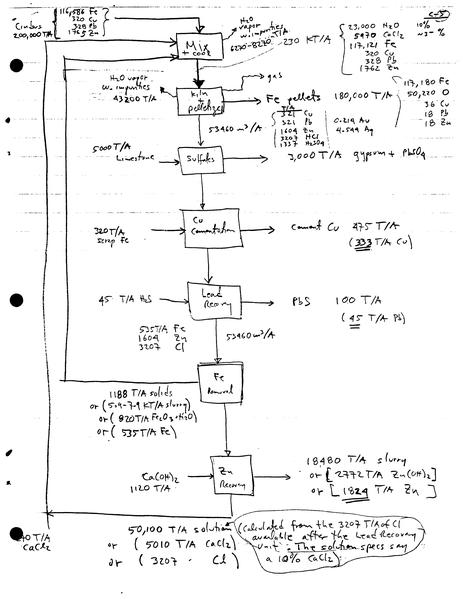 116,586 Fe
320 Cu
328 Pb
1765 Zn
Cinbus
200,000 T/A
Mix
+ cool
H2O
vapor
w. impurities
6270-8270 T/A
230 KT/A
23,000 H2O
5970 CaCl2
117,121 Fe
320 Cu
328 Pb
1762 Zn
10%
~3-%
H2O vapor
w. impurities
43200 T/A
kiln
+
pelletize
gas
Fe pellets
180,000 T/A
117,180 Fe
50,220 O
36 Cu
18 Pb
18 Zn
T/A
321 Cu
321 Pb
1604 Zn
3207 HCl
1337 H2SO4
0.214 Au
4.544 Ag
53460 m³/A
5000 T/A
Limestone
Sulfates
3,000 T/A gypsum + PbSO4
320 T/A
scrap Fe
Cu
Cementation
Cement Cu 475 T/A
(333 T/A Cu)
45 T/A H2S
Lead
Recovery
PbS 100 T/A
(45 T/A Pb)
535 T/A Fe
1604 Zn
3207 Cl
53460 m³/A
Fe
Removal
1188 T/A solids
or (5.9-7.9 KT/A slurry)
or (820 T/A Fe2O3 + H2O)
or (535 T/A Fe)
Ca(OH)2
1120 T/A
Zn
Recovery
18,480 T/A slurry
or [2772 T/A Zn(OH)2]
or [1824 T/A Zn]
T/A
CaCl2
50,100 T/A solution
or (5010 T/A CaCl2)
or (3207 · Cl)
(Calculated from the 3207 T/A of Cl
available after the Lead Recovery
Unit. The solution specs say
a 10% CaCl2)